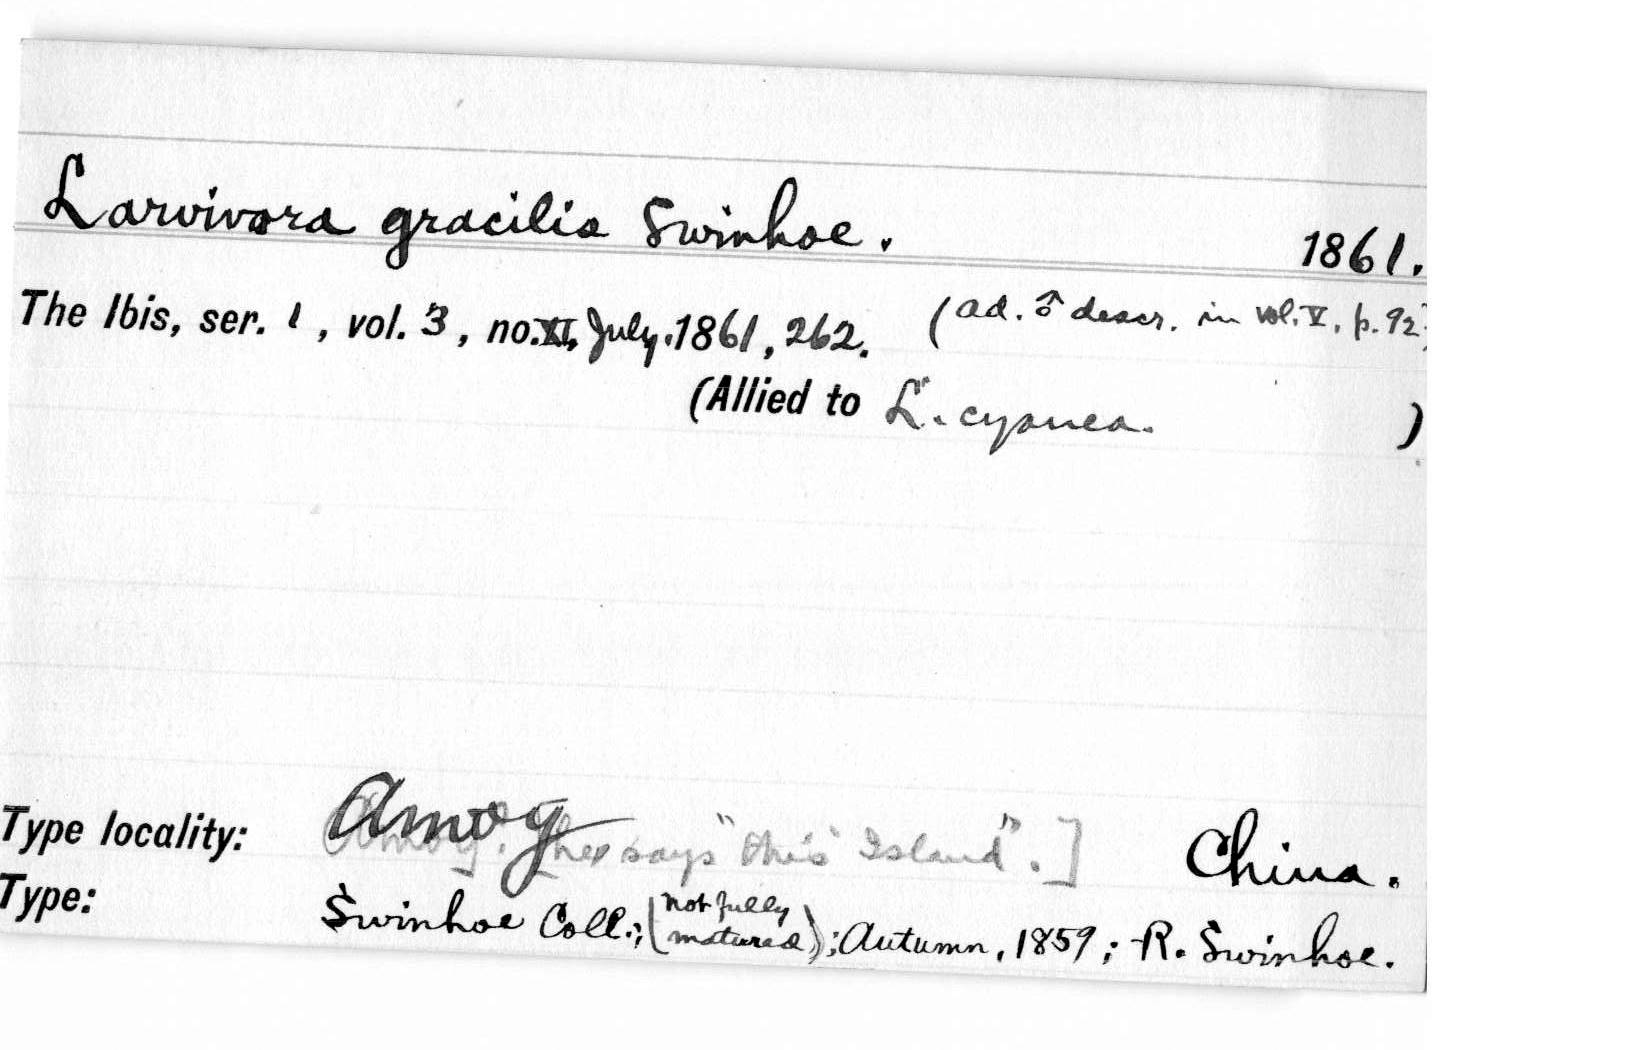 Larvivora gracilis Swinhoe. 1861.
The Ibis, ser. 1, vol. 3, no. XI, July, 1861, 262. (ad. ♂ descr. in vol. V, p. 92)
(Allied to L. cyanea. )
Type locality: Amoy [he says "this Island".] China.
Type: Swinhoe Coll.; (not fully matured); Autumn, 1859; R. Swinhoe.